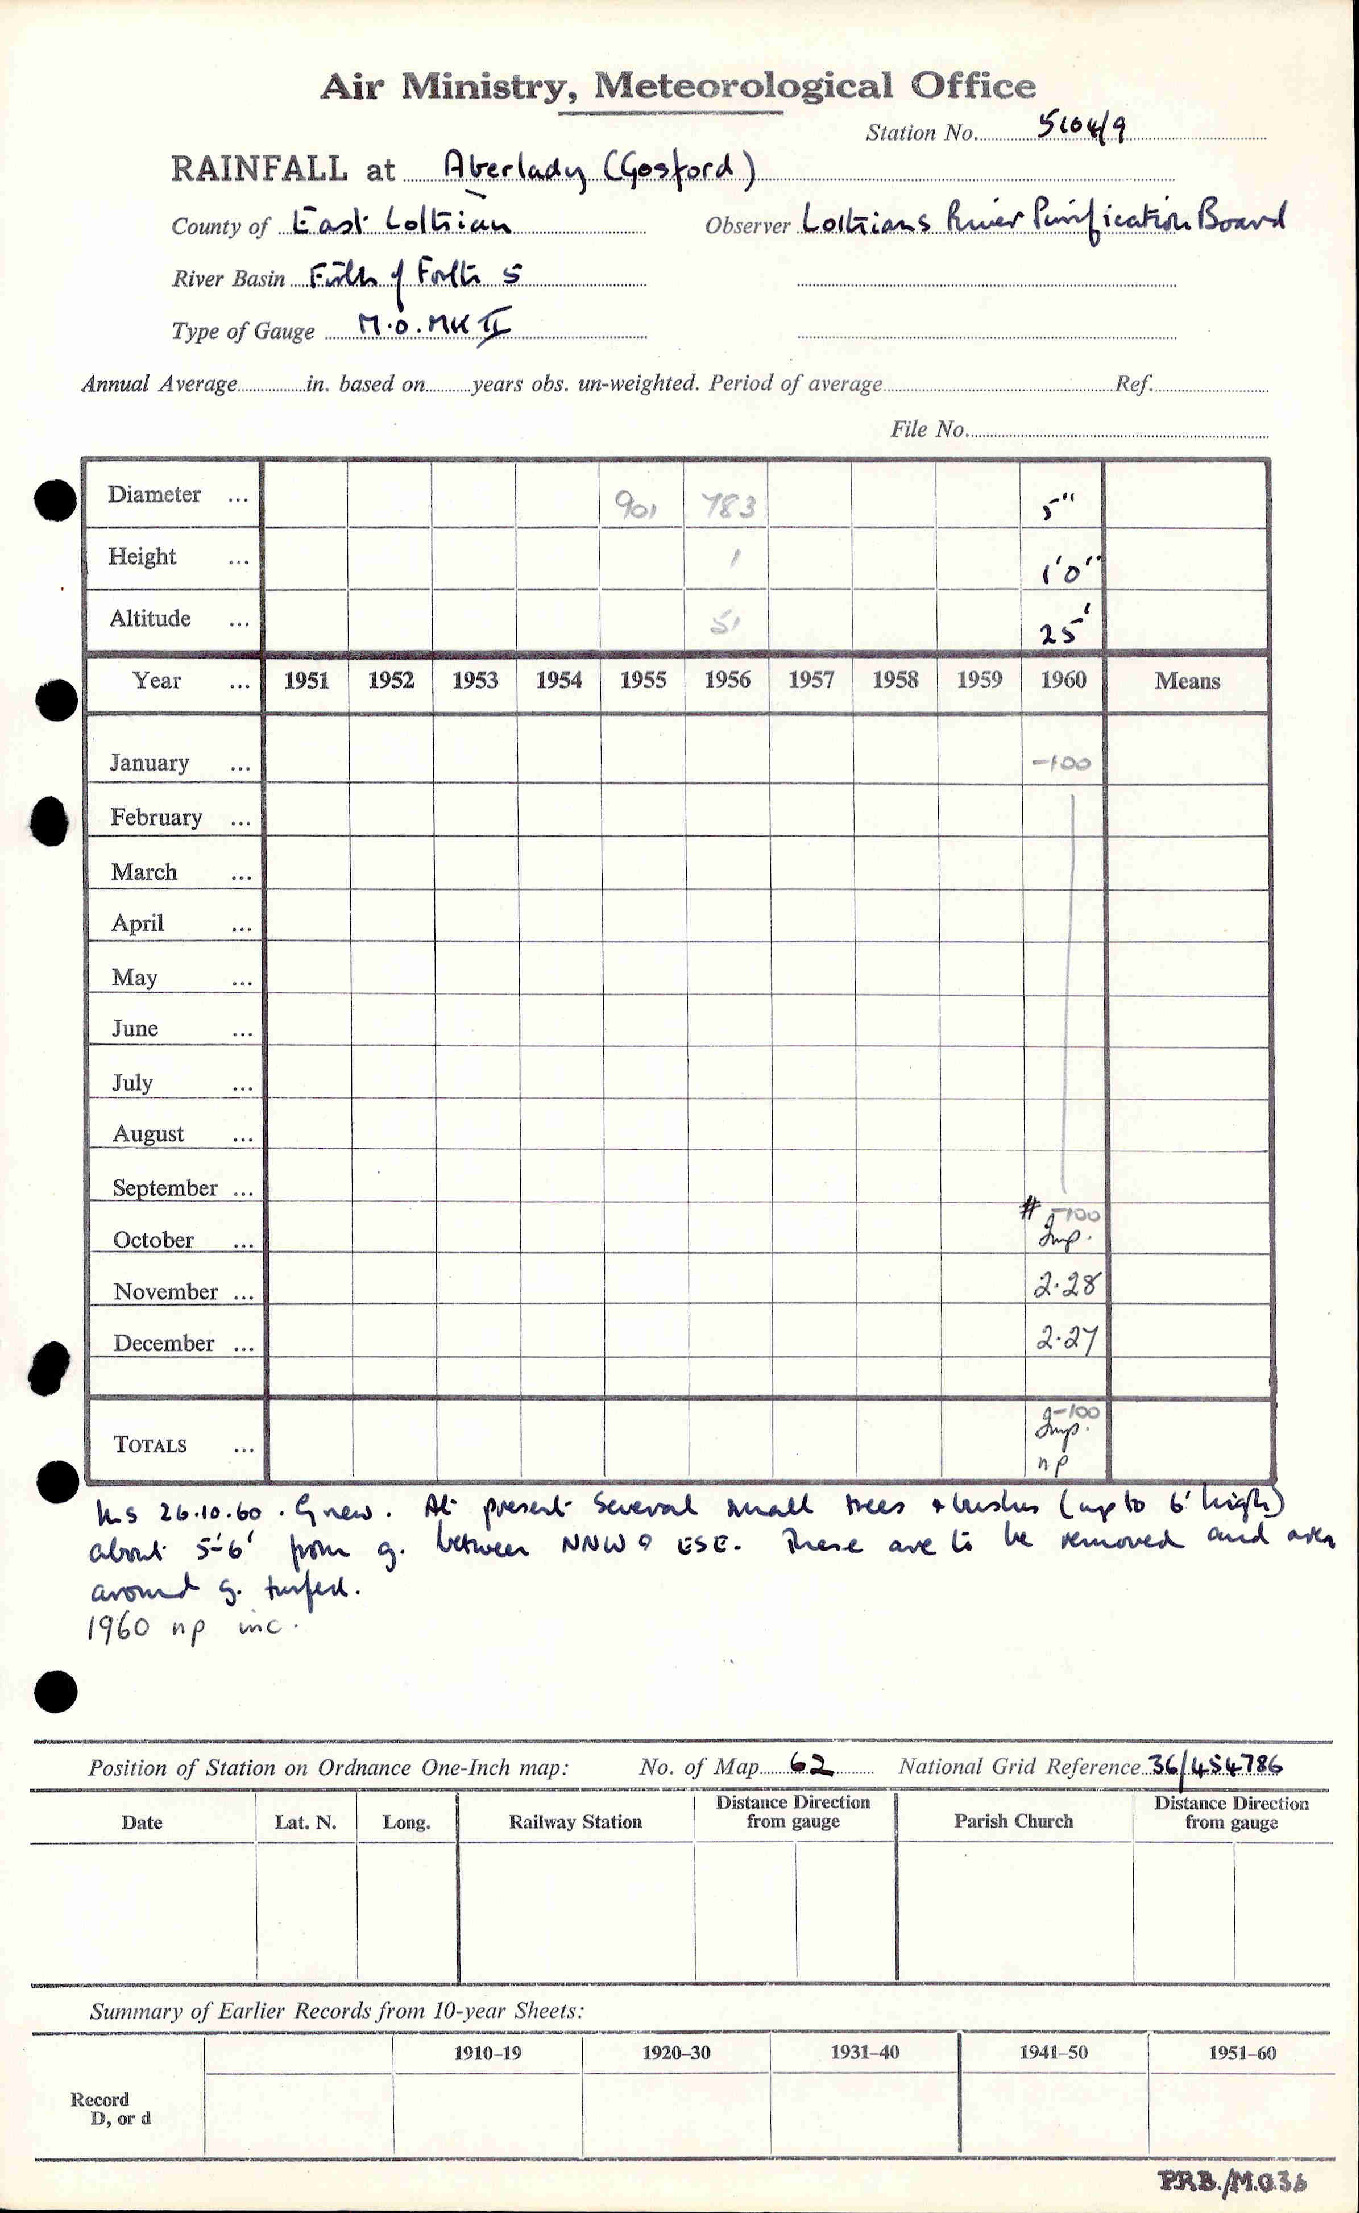 Air Ministry, Meteorological Office
Station No. 5104/9
RAINFALL at Aberlady (Gosford)
County of East Lothian Observer Lothians River Purification Board
River Basin Firth of Forth S
Type of Gauge M.O. MK II
Annual Average in. based on years obs. un-weighted. Period of average Ref.
File No.
Diameter ... 901 783 5"
Height ... 1 1'0"
Altitude ... 51 25'
Year ... 1951 1952 1953 1954 1955 1956 1957 1958 1959 1960 Means
January ... -100
February ...
March ...
April ...
May ...
June ...
July ...
August ...
September ...
# -100
October ... Imp.
November ... 2.28
December ... 2.27
-100
TOTALS ... Imp.
np
Ins 26.10.60. G new. At present several small trees & bushes (up to 6' high)
about 5'-6' from g. between NNW & ESE. These are to be removed and area
around g. turfed.
1960 np inc.
Position of Station on Ordnance One-Inch map: No. of Map 62 National Grid Reference 36/454786
Date Lat. N. Long. Railway Station Distance Direction from gauge Parish Church Distance Direction from gauge
Summary of Earlier Records from 10-year Sheets:
1910–19 1920–30 1931–40 1941–50 1951–60
Record
D, or d
PRB./M.O.36